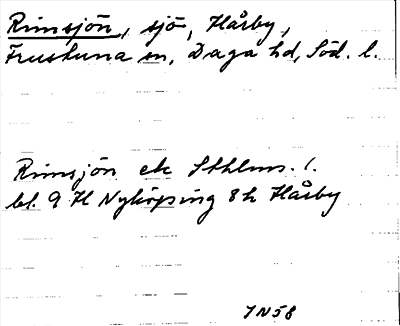 Rimsjön, sjö, Hårby,
Frustuna sn, Daga hd, Söd. l.
Rimsjön ek Sthlms. l.
bl. 9 H Nyköping 8h Hårby
JN58